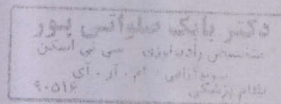 دکتر بابک صلواتی پور
متخصص رادیولوژی سی تی اسکن
سونوگرافی . ام . آر . آی
نظام پزشکی ۹۰۵۱۶